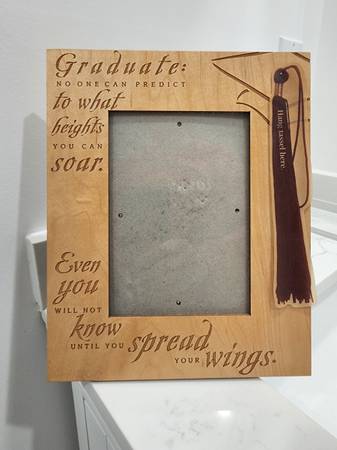 Graduate:
NO ONE CAN PREDICT
to what
heights
YOU CAN
soar.
Even
you
WILL NOT
know
UNTIL YOU spread
YOUR wings.
Hang tassel here